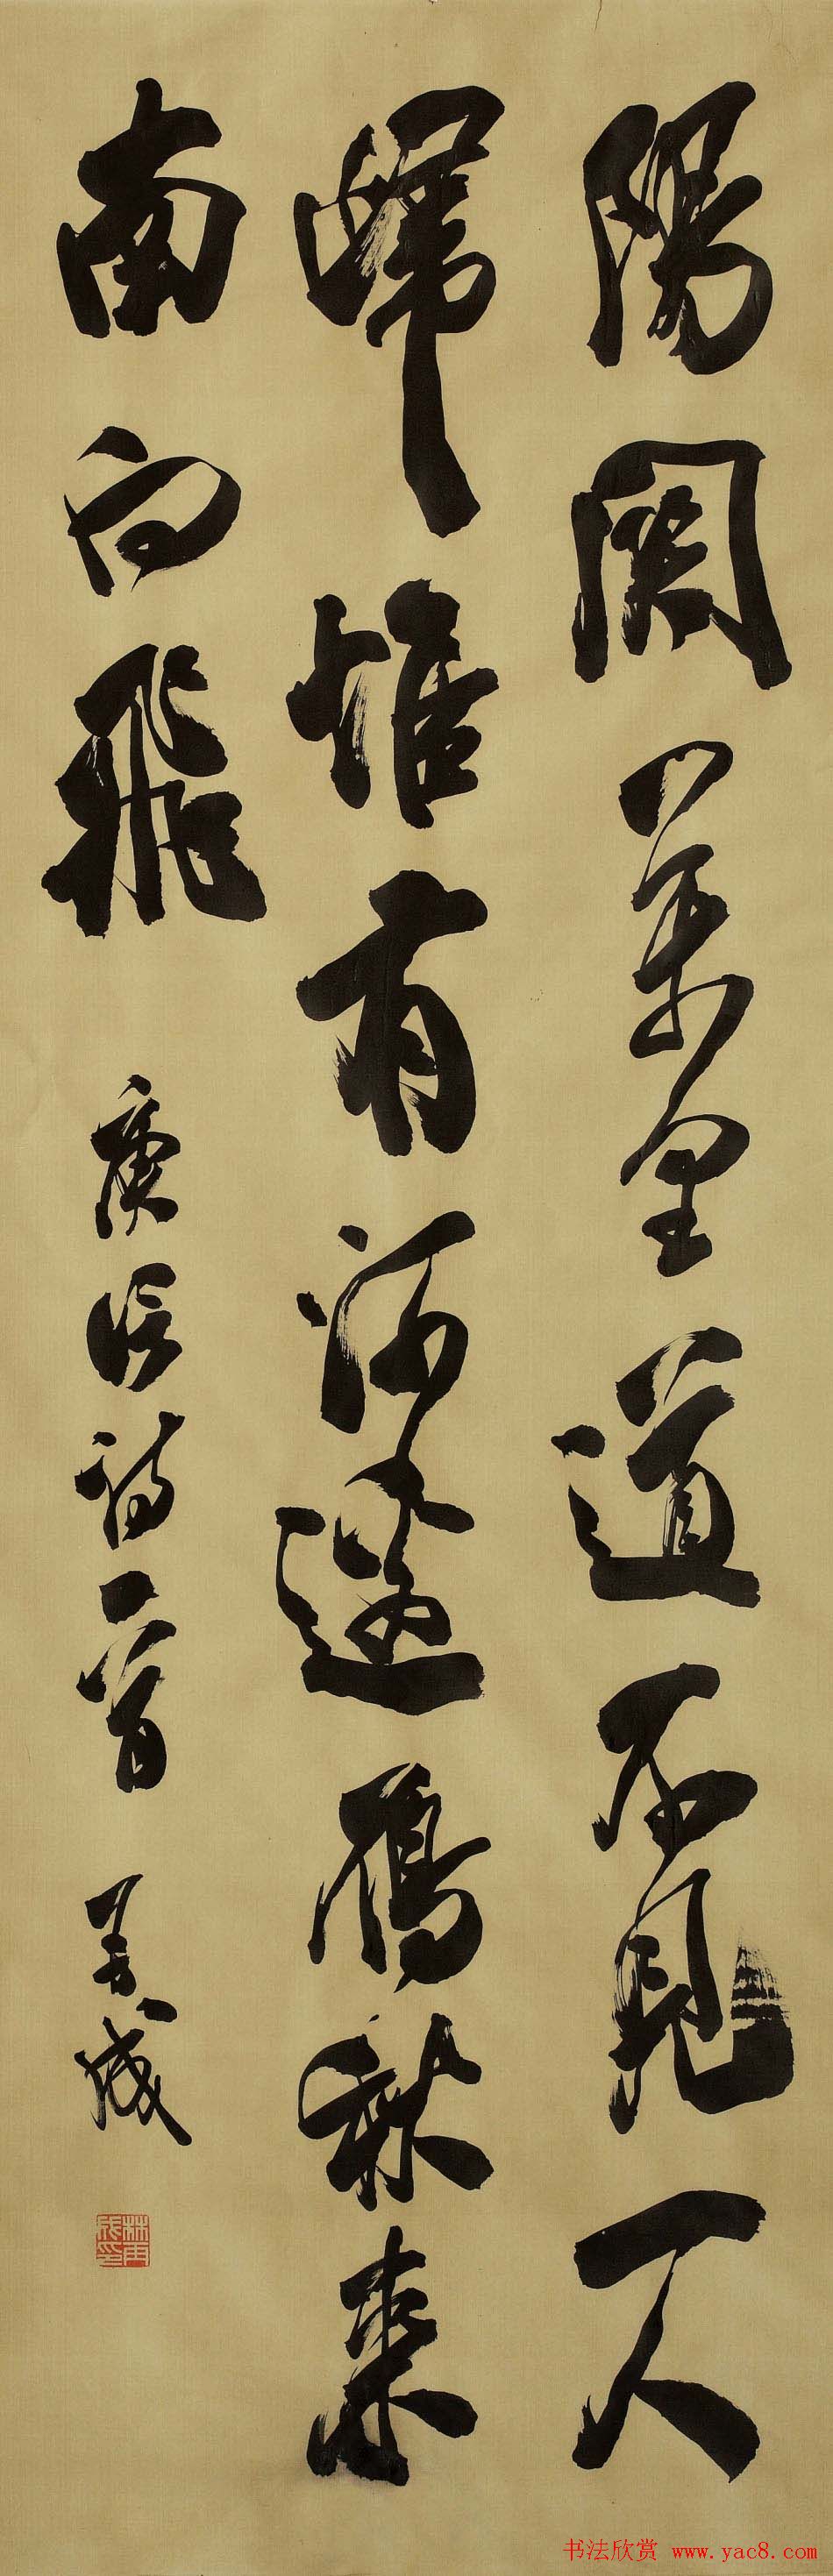 陽關萬里道不見一人
歸惟有河邊鴈秋來
南向飛 庾信詩一首 再成
林再成印
书法欣赏 www.yac8.com